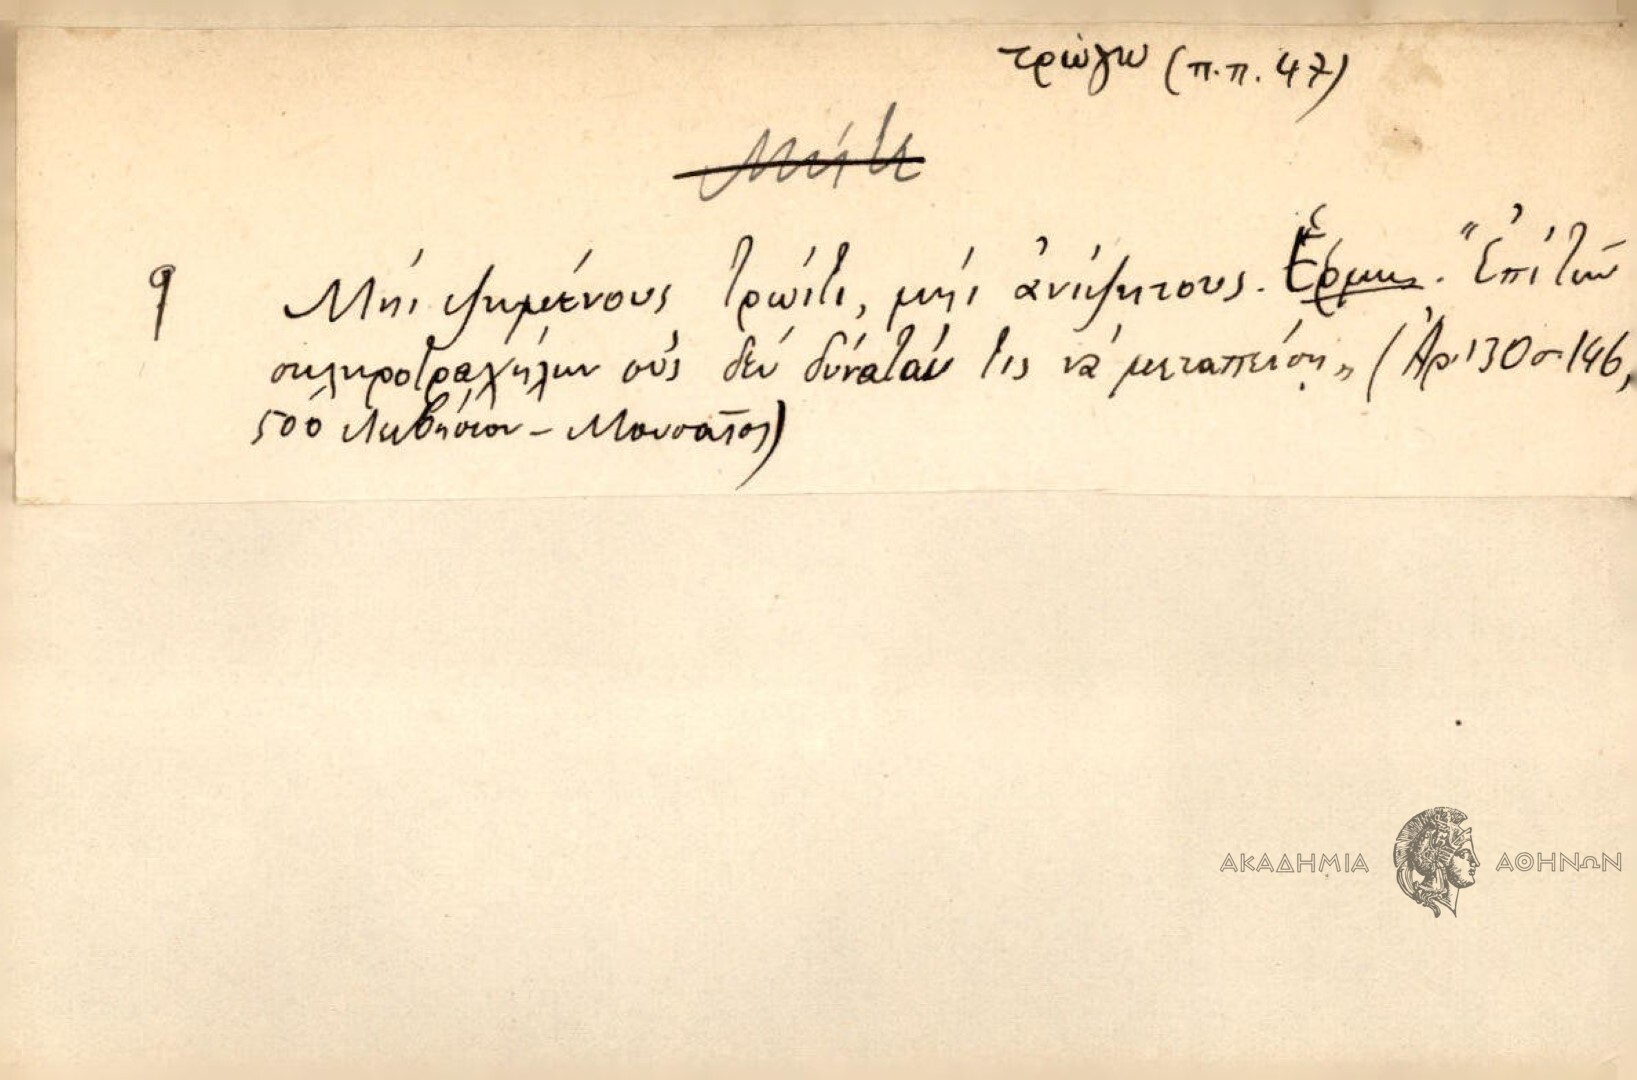 τρώγω (π.π. 47)
Μήτε
9 Μηί ψημένους τρώιτι, μηί ἀνίψητους. Ἑρμ. "Ἐπί τῶν
σκληροτραχήλων οὕς δέν δύναταί τις νά μεταπείσῃ" (Ἀρ. 130 σ. 146,
500 Λιβήσιον - Μουσαῖος)
ΑΚΑΔΗΜΙΑ ΑΘΗΝΩΝ